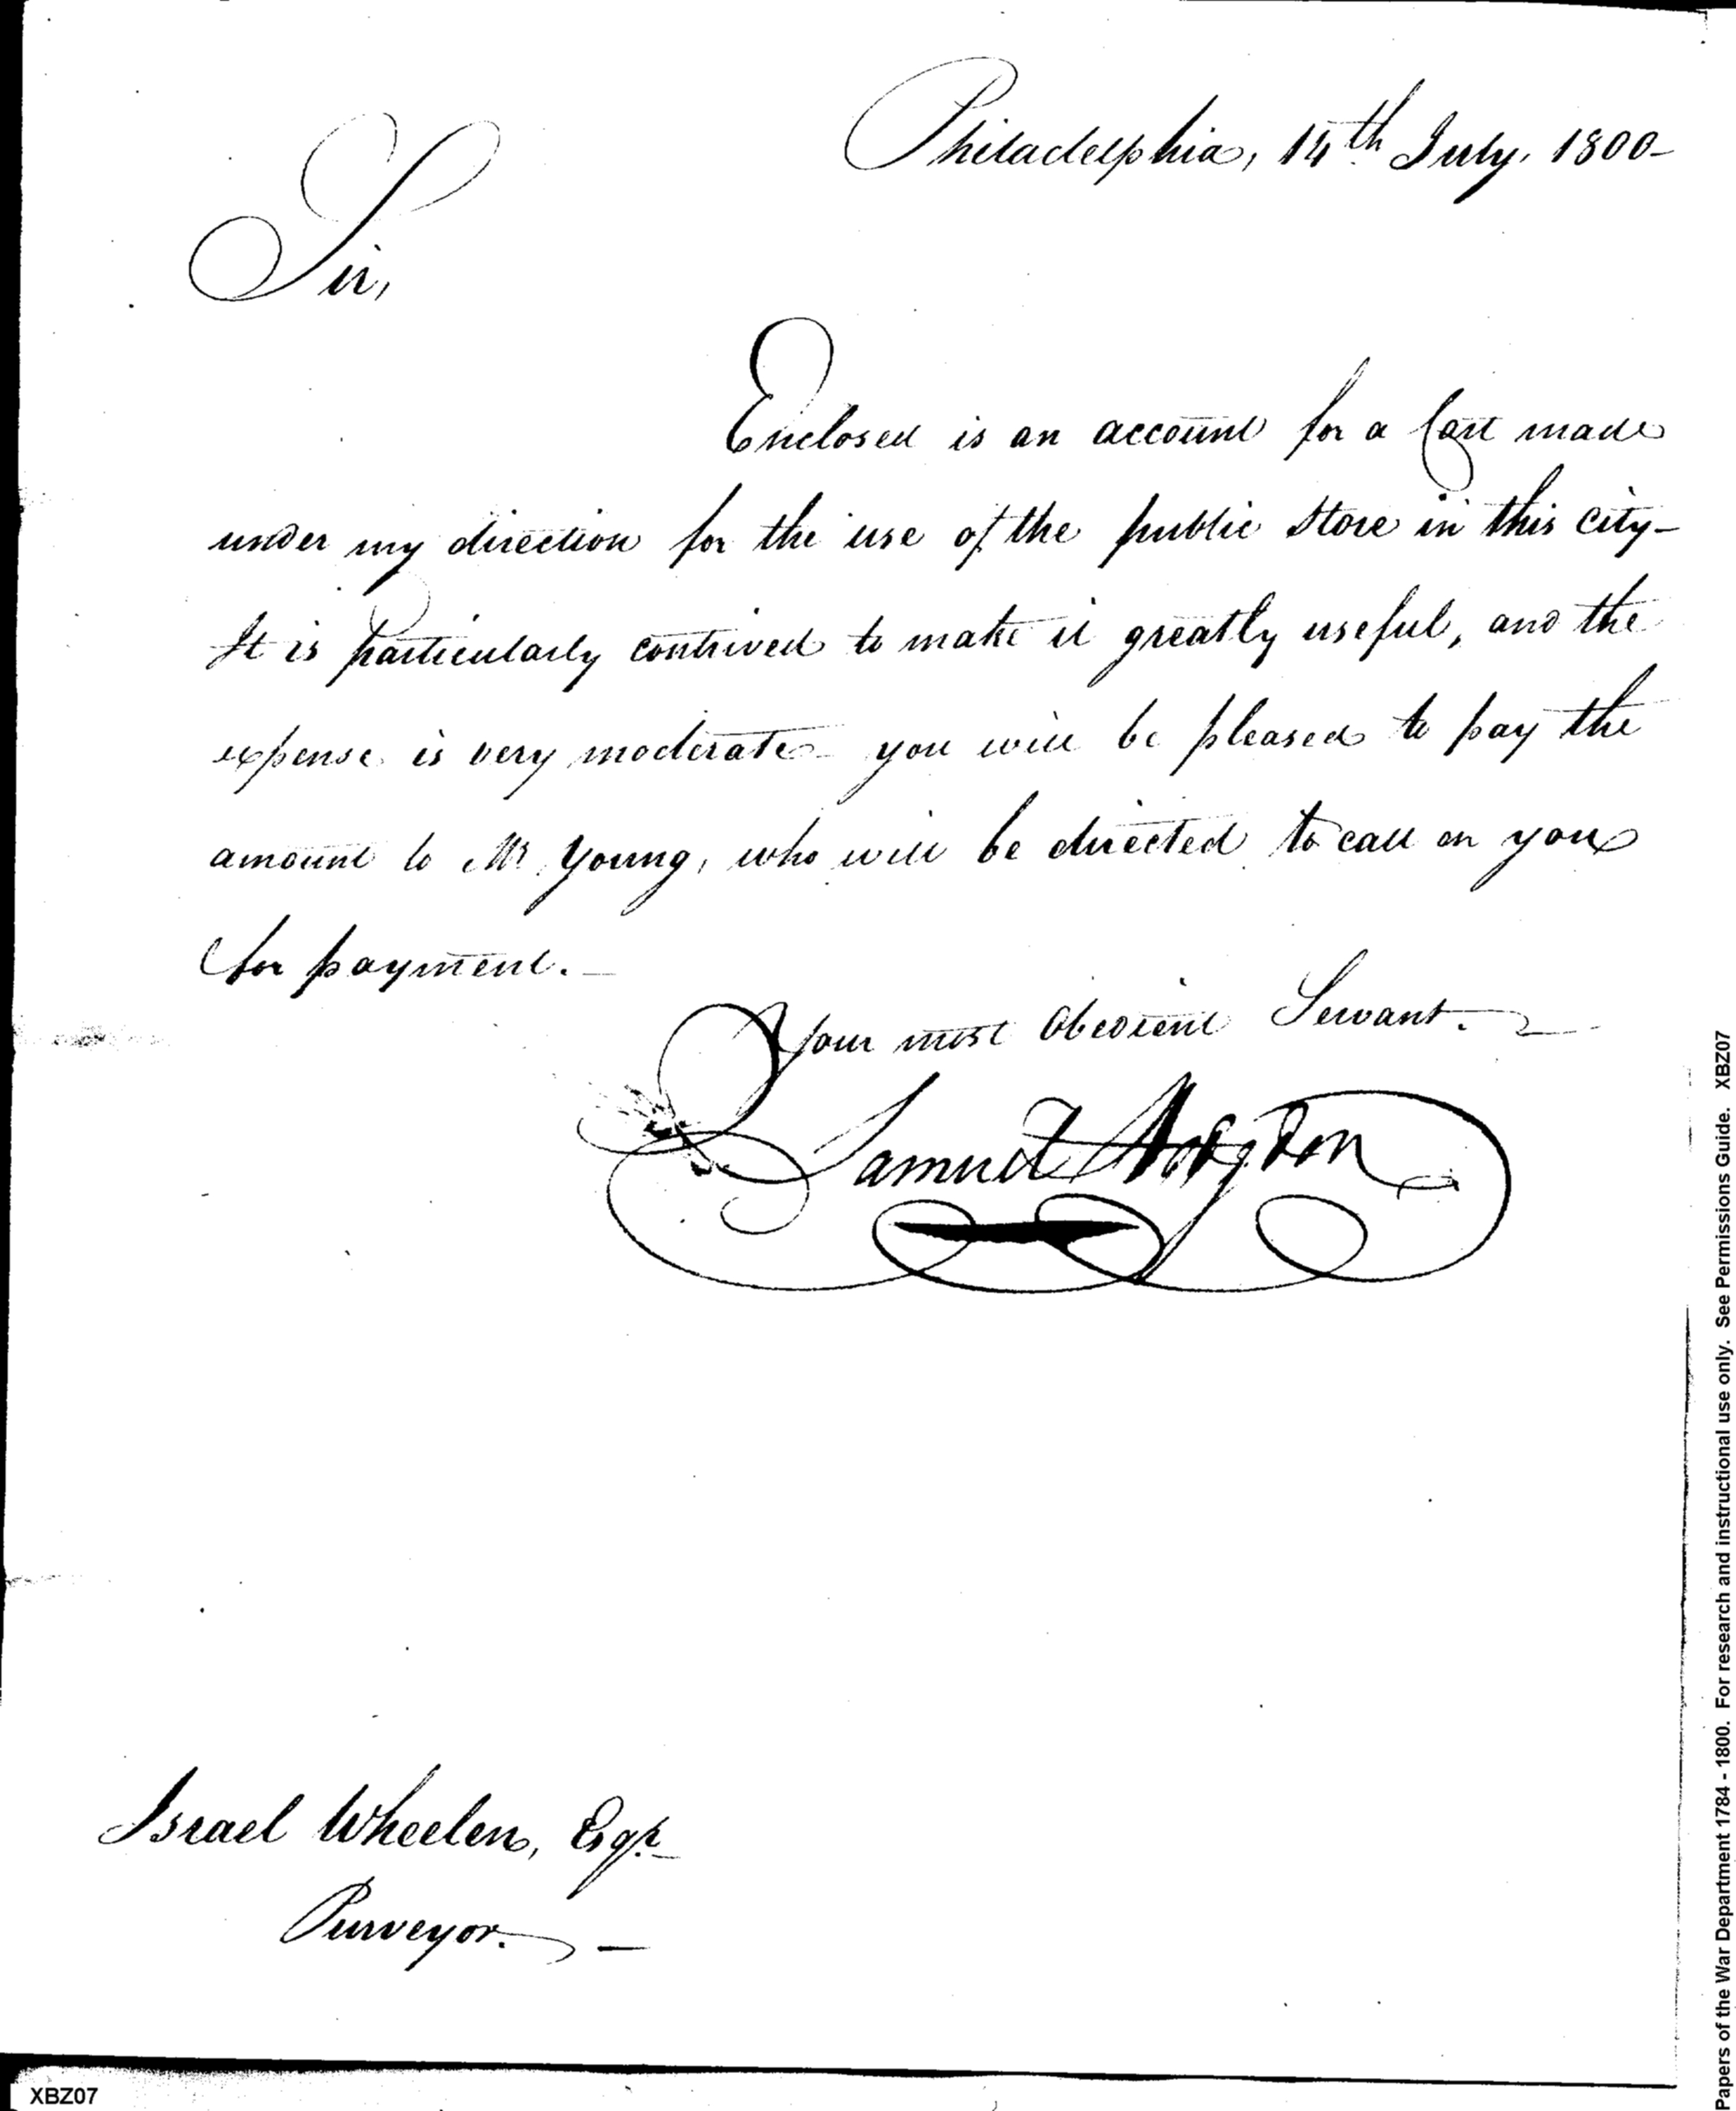 Philadelphia, 14th July, 1800-
Sir,
Enclosed is an account for a Cart made
under my direction for the use of the public Store in this city-
It is particularly contrived to make it greatly useful, and the
expense is very moderate- you will be pleased to pay the
amount to Mr Young, who will be directed to call on you
for payment.-
Your most Obedient Servant.
Samuel Hodgdon
Israel Wheelen, Esqr.
Purveyor. -
XBZ07
Papers of the War Department 1784 - 1800. For research and instructional use only. See Permissions Guide. XBZ07